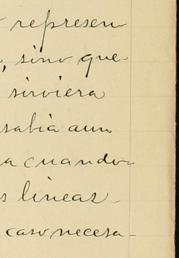 represen
, sino que
sirviera
sabia aun
a cuando
s lineas
caso necesa-